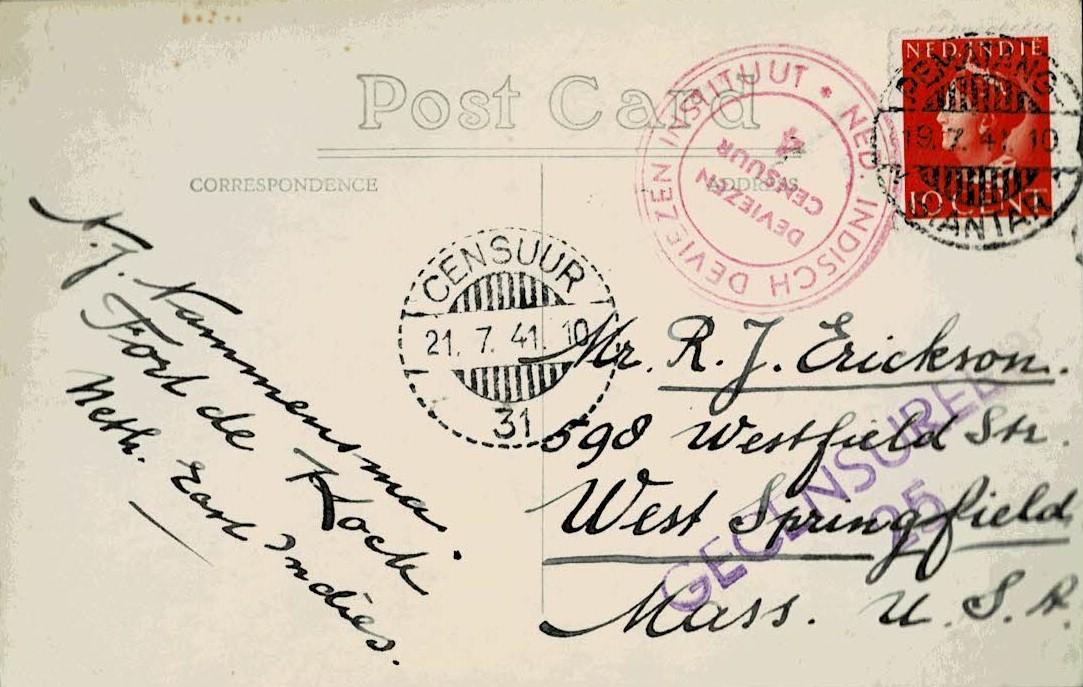 Post Card
CORRESPONDENCE
ADDRESS
NED. INDISCH DEVIEZEN INSTITUUT *
DEVIEZEN
CENSUUR
4
NED. INDIË
19. 7. 41. 10
10 CENT
CENSUUR
21. 7. 41. 10
31
N. J.
Fort de Kock
Neth. East Indies.
Mr. R. J. Erickson.
598 Westfield Str.
West Springfield
Mass. U. S. A.
GECENSUREERD
25